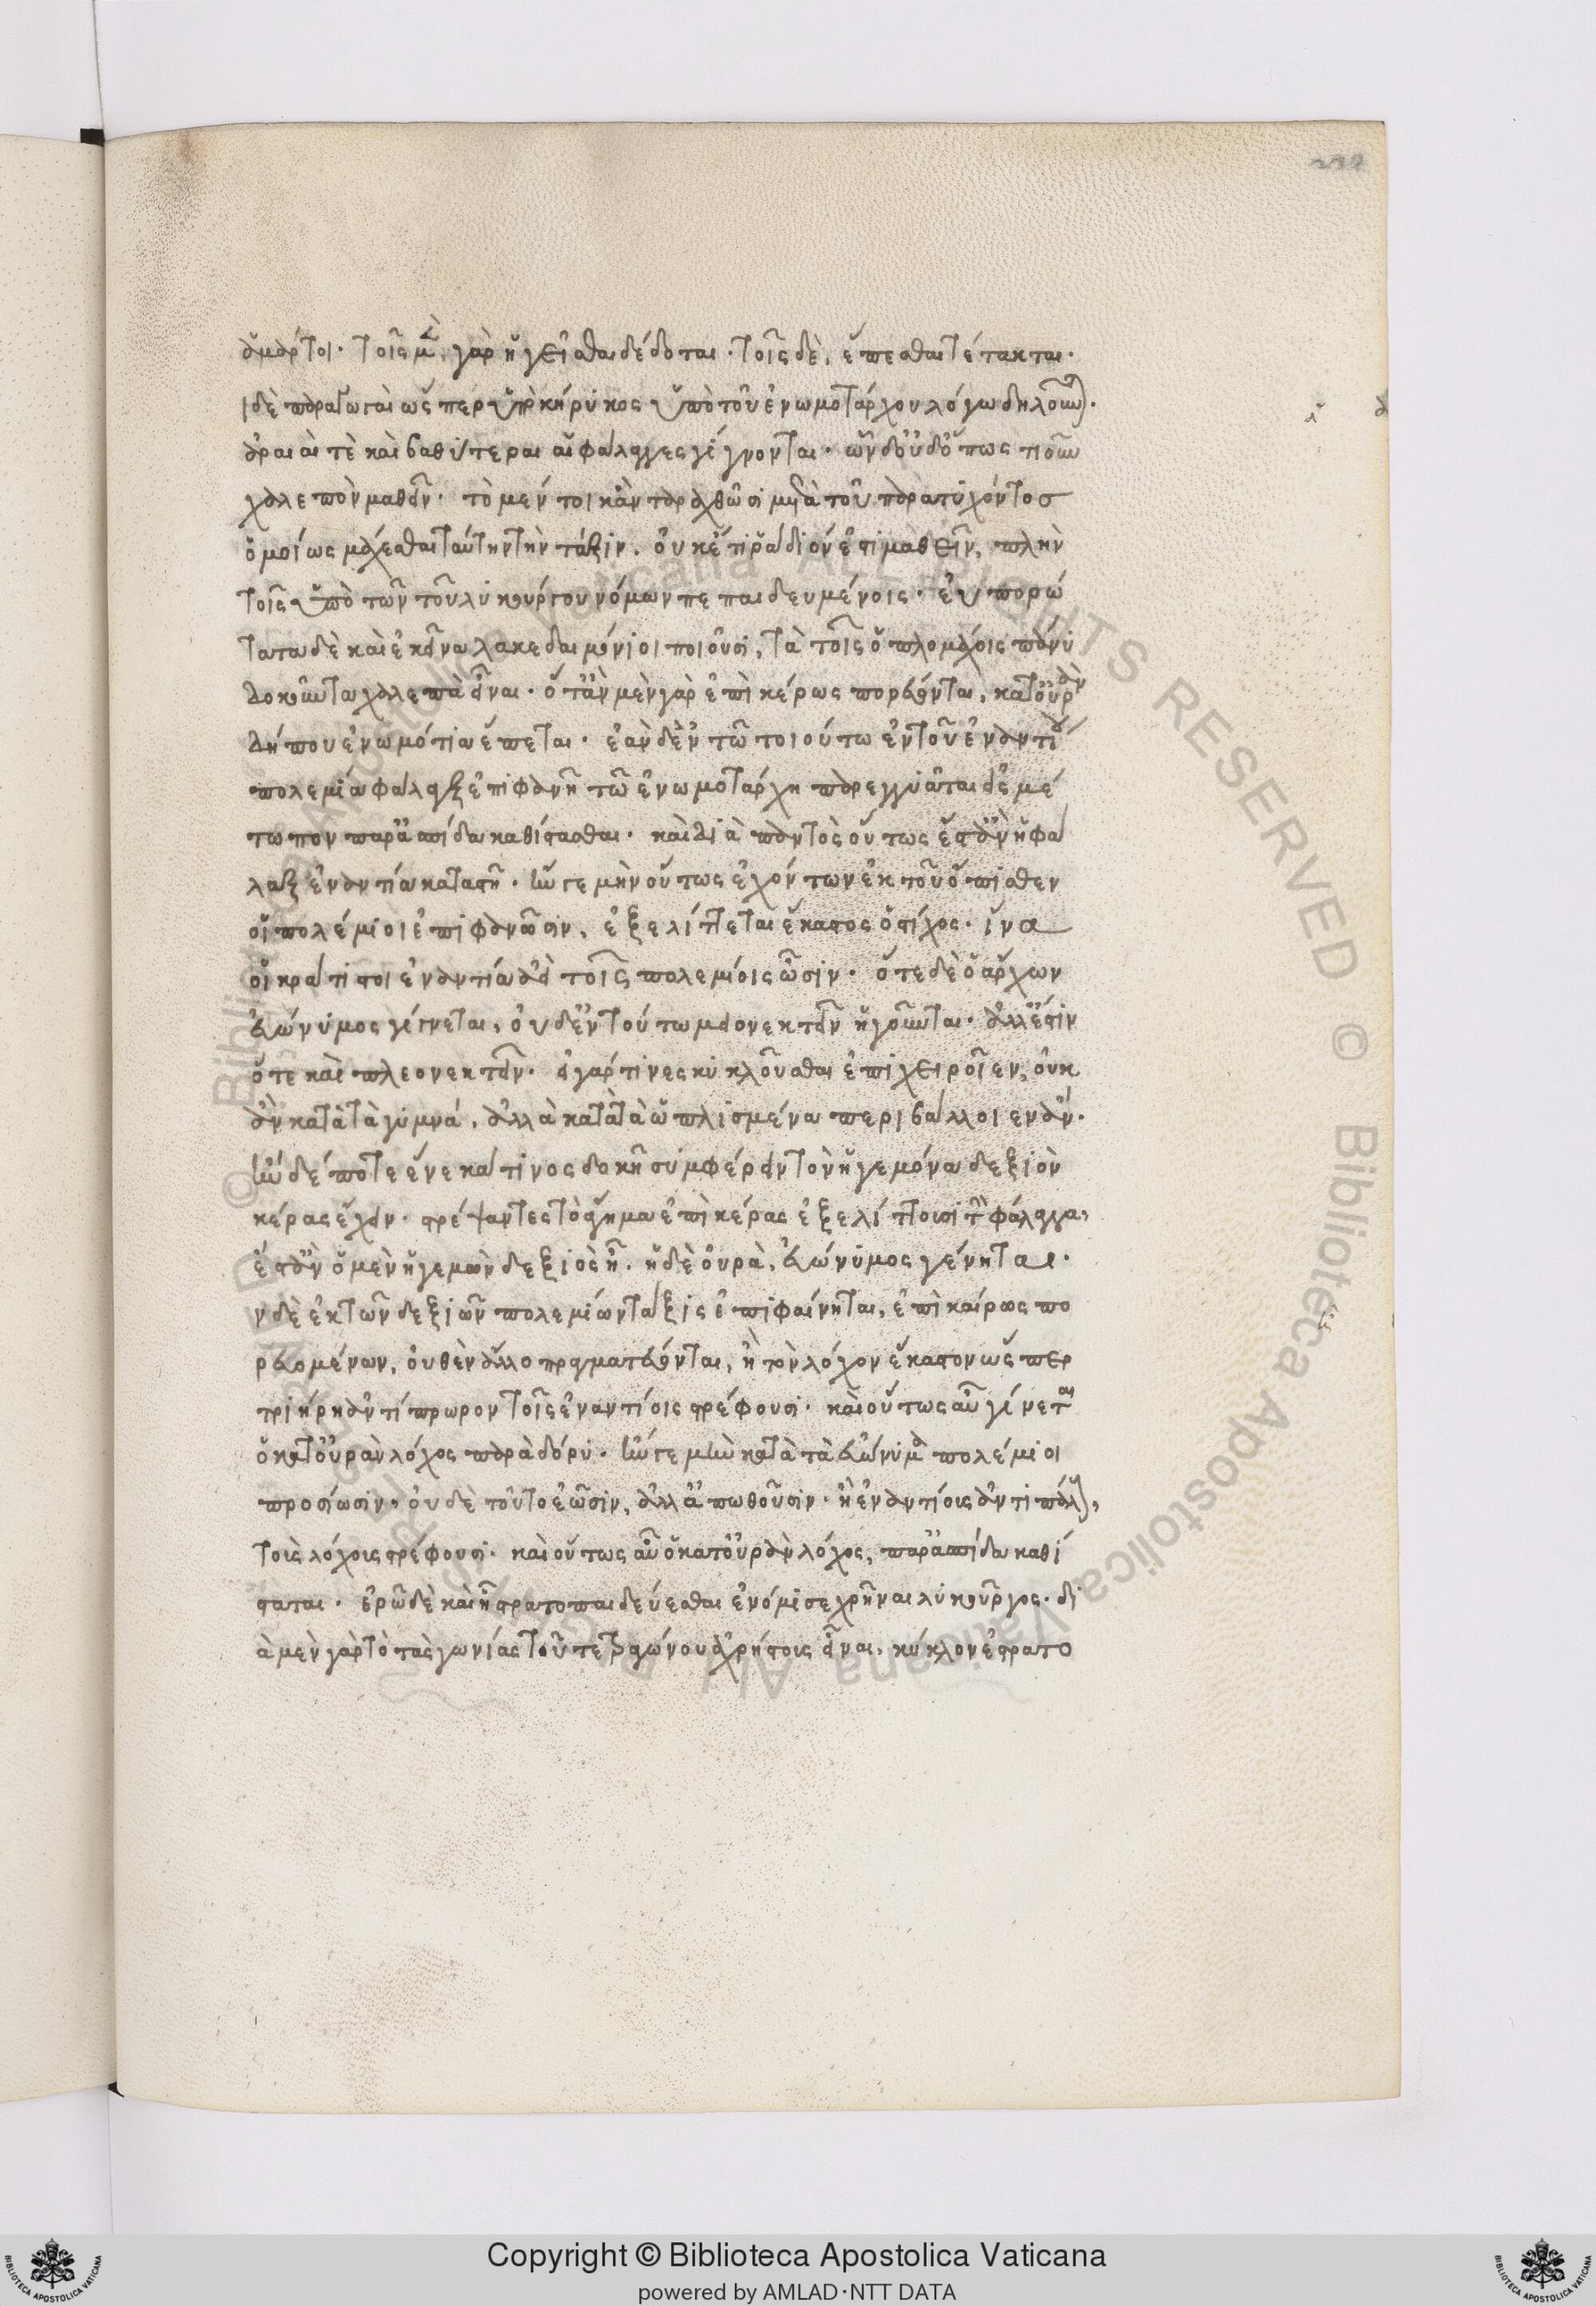 ἁμάρτοι· τοῖς μὲν γὰρ ἡγεῖσθαι δέδοται· τοῖς δὲ, ἕπεσθαι τέτακται·
ι δὲ παραγωγαὶ ὥσπερ ὑπὸ κήρυκος ὑπὸ τοῦ ἐνωμοτάρχου λόγω δηλοῦνται·
ἀραιαί τὲ καὶ βαθύτεραι αἱ φάλαγγες γίγνονται· ὧν δ' οὐδ' ὁπωστιοῦν
χαλεπὸν μαθεῖν· τὸ μέν τοι κἂν ταραχθῶσι μετὰ τοῦ παρατυχόντος
ὁμοίως μάχεσθαι ταύτην τὴν τάξιν, οὐκέτι ῥάδιόν ἐστι μαθεῖν, πλὴν
τοῖς ὑπὸ τῶν τοῦ λυκούργου νόμων πεπαιδευμένοις· εὐπορώ
τατα δὲ καὶ ἐκεῖνα λακεδαιμόνιοι ποιοῦσι, τὰ τοῖς ὁπλομάχοις πάνυ
δοκοῦντα χαλεπὰ εἶναι· ὅταν μὲν γὰρ ἐπὶ κέρως πορεύονται, κατ' οὐρὰν
δήπου ἐνωμοτία ἕπεται· ἐὰν δ' ἐν τῶ τοιούτω ἐν τοῦ ἐναντίου
πολεμία φάλαγξ ἐπιφανῆ τῶ ἐνωμοτάρχη παρεγγυᾶται εἰς μέ
τωπον παρ' ἀσπίδα καθίστασθαι· καὶ διὰ παντὸς οὕτως ἔστ' ἂν ἡ φά
λαγξ ἐναντία καταστῆ· ὥστε μὴν οὕτως ἐχόντων ἐκ τοῦ ὄπισθεν
οἱ πολέμιοι ἐπιφανῶσιν, ἐξελίττεται ἕκαστος ὁ στίχος· ἵνα
οἱ κράτιστοι ἐναντία ἀεὶ τοῖς πολεμίοις ὦσιν· ὅτε δὲ ὁ ἄρχων
εὐώνυμος γίγνεται, οὐδ' ἐν τούτω μειονεκτεῖν ἡγοῦνται· ἀλλ' ἔστιν
ὅτε καὶ πλεονεκτεῖν· εἰ γάρ τινες κυκλοῦσθαι ἐπιχειροῖεν, οὐκ
ἂν κατὰ τὰ γυμνά, ἀλλὰ κατὰ τὰ ὡπλισμένα περιβάλλοιεν ἄν·
ἢν δέ ποτε ἕνεκά τινος δοκῆ συμφέρειν τὸν ἡγεμόνα δεξιὸν
κέρας ἔχειν· στρέψαντες τὸ ἄγημα ἐπὶ κέρας ἐξελίττουσι τὴν φάλαγγα,
ἔστ' ἂν ὁ μὲν ἡγεμὼν δεξιὸς ἦ· ἡ δὲ οὐρὰ, εὐώνυμος γένηται·
ν δὲ ἐκ τῶν δεξιῶν πολεμίων τάξις ἐπιφαίνηται, ἐπὶ καίρως πο
ρευομένων, οὐθὲν ἄλλο πραγματεύονται, ἢ τὸν λόχον ἕκαστον ὥσπερ
τριήρη ἀντίπρωρον τοῖς ἐναντίοις στρέφουσι· καὶ οὕτως αὖ γίνεται
ὁ κατ' οὐρὰν λόχος παρὰ δόρυ· ὥστε μὴν κατὰ τὰ εὐώνυμα πολέμιοι
προσίωσιν, οὐδὲ τοῦτο ἐῶσιν, ἀλλ' ἀπωθοῦσιν· ἢ ἐναντίοις ἀντιπάλους
τοῖς λόχοις στρέφουσι· καὶ οὕτως αὖ ὁ κατ' οὐρὰν λόχος, παρ' ἀσπίδα καθί
σταται· ἐρῶ δὲ καὶ ἧ στρατοπαιδεύεσθαι ἐνόμισε χρῆναι λυκοῦργος· δι
ὰ μὲν γὰρ τὸ τὰς γωνίας τοῦ τετραγώνου ἀχρήστοις εἶναι, κύκλον ἐστρατο